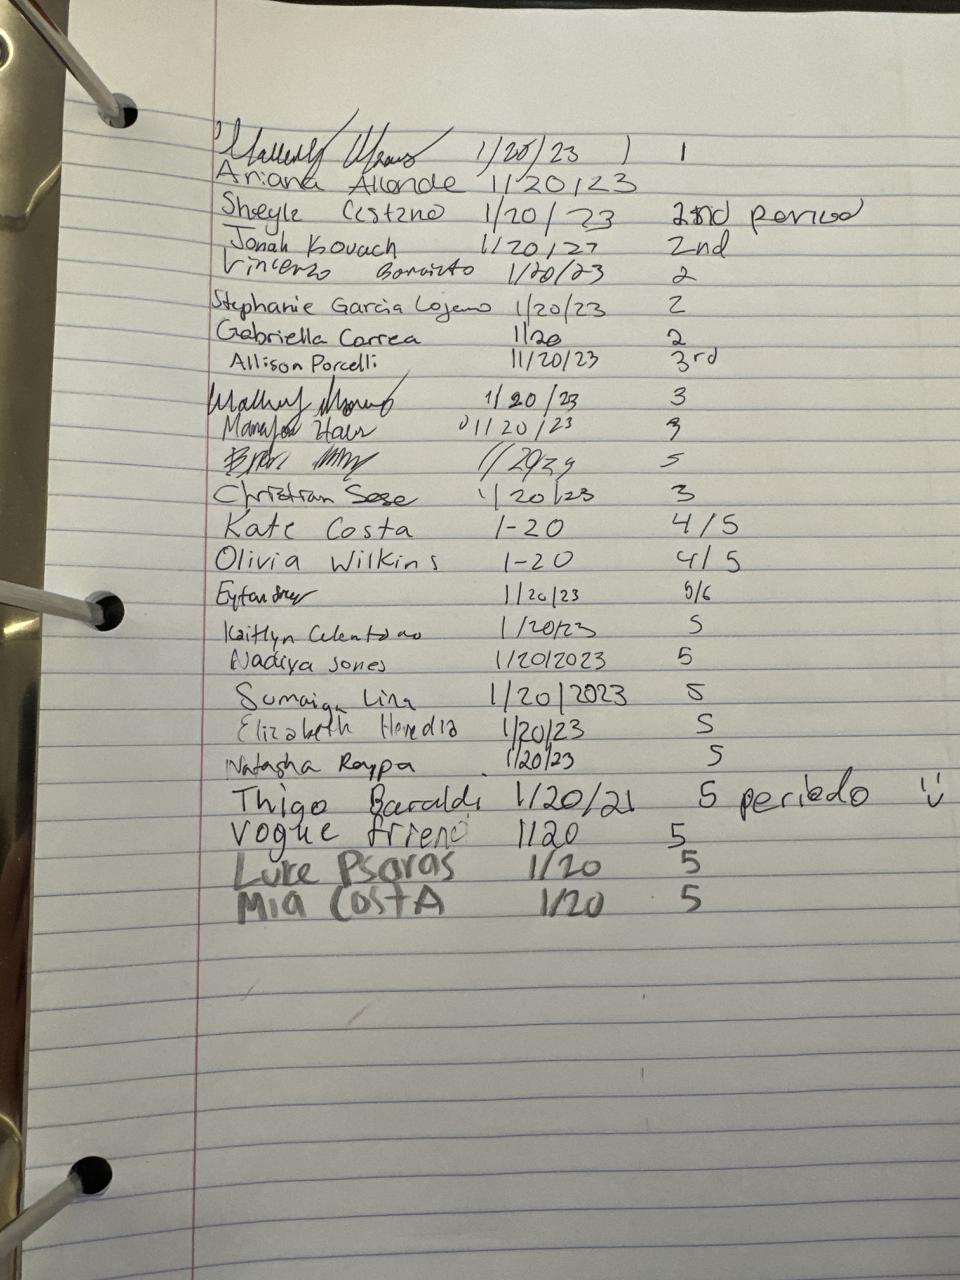 1/20/23 ) 1
Ariana Allende 1/20/23
Sheyla 1/20/23 2nd period
Jonah Kovach 1/20/27 2nd
Vincenzo 1/20/23 2
Stephanie Garcia Lozano 1/20/23 2
Gabriella Correa 1/20 2
Allison Porcelli 11/20/23 3rd
1/20/23 3
1/20/23 3
5
Christian Sese 1/20/23 3
Kate Costa 1-20 4/5
Olivia Wilkins 1-20 4/5
Eytan 1/20/23 5/6
Kaitlyn Celentano 1/20/23 5
Nadiya Jones 1/20/2023 5
Sumaiya Lira 1/20/2023 5
Elizabeth Heredia 1/20/23 5
Natasha Raypa 1/20/23 5
Thigo Baraldi 1/20/21 5 periodo
Vogue friend 1120 5
Luke Psaras 1/20 5
Mia CostA 1/20 5